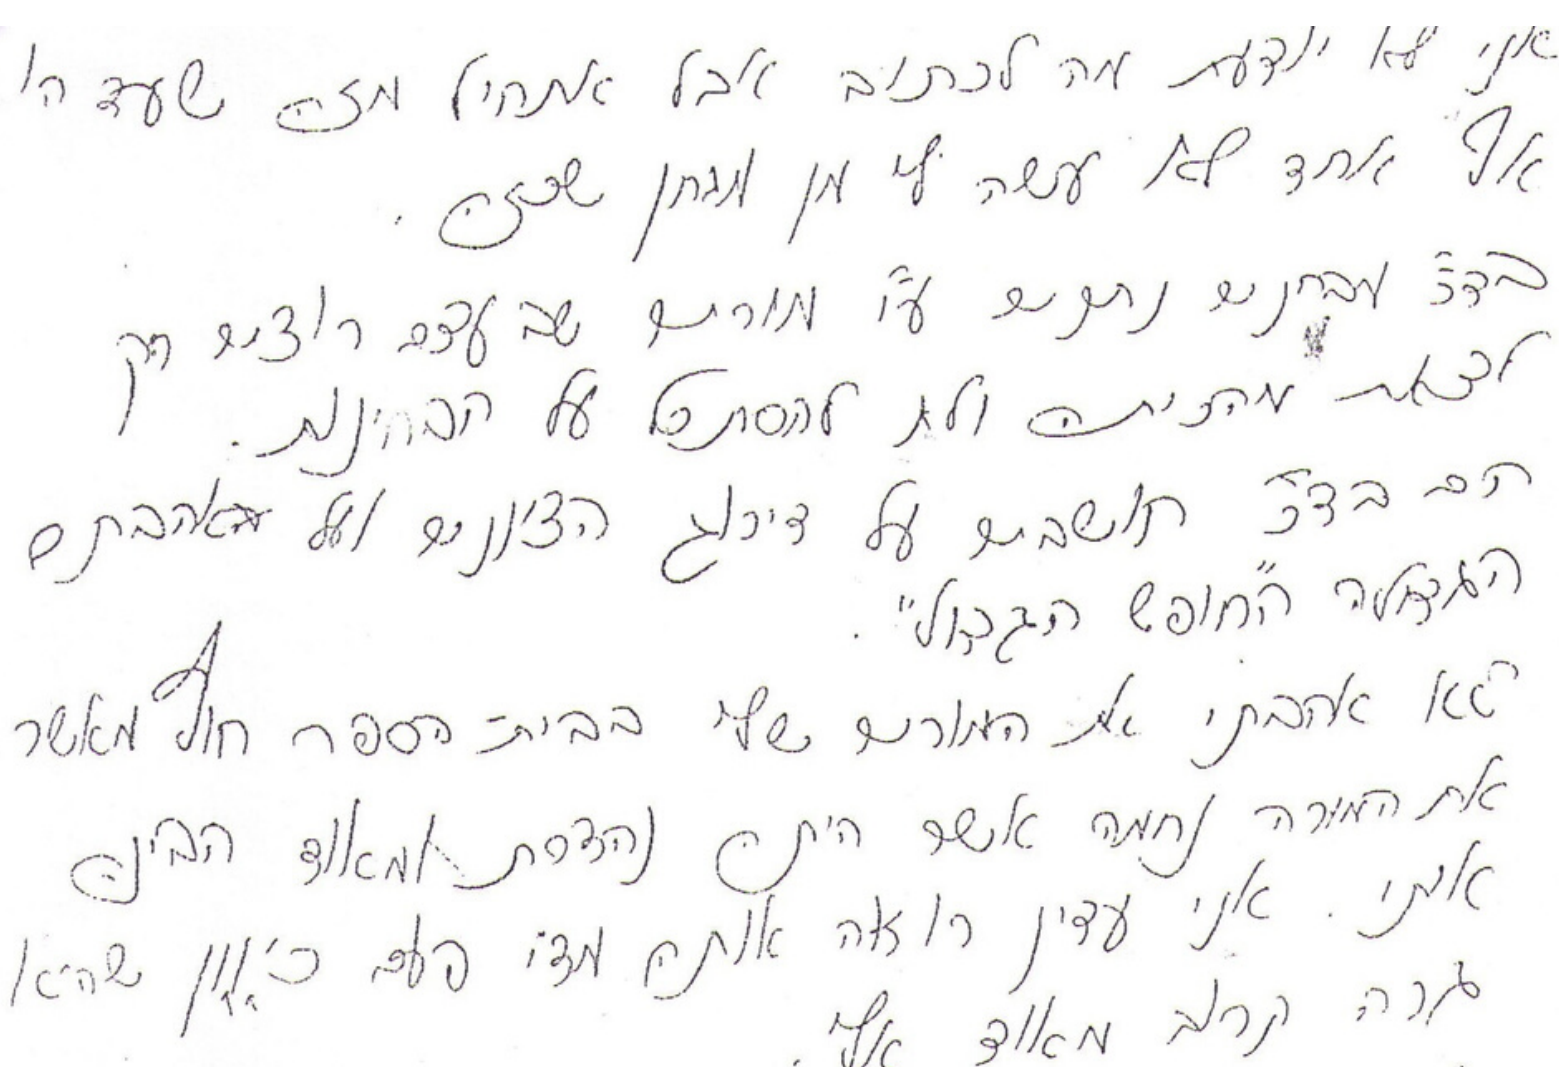 אני לא יודעת מה לכתוב אבל אתחיל מזה שעד היו
אף אחד לא עשה לי מן מבחן שכזה.
בד"כ מבחנים נתנים ע"י מורים שבעצם רוצים רק
לצאת מהכיתה ולא להסתכל על הבחינות.
הם בד"כ חושבים על דירוג הציונים ועל אהבתם
הגדולה ה"חופש הגדול".
לא אהבתי את המורים שלי בבית הספר חוץ מאשר
את המורה נחמה אשר היתה נהדרת ומאוד הבינה
איתי. אני עדין רואה אותה מדי פעם כיוון שהיא
גרה קרוב מאוד אלי.